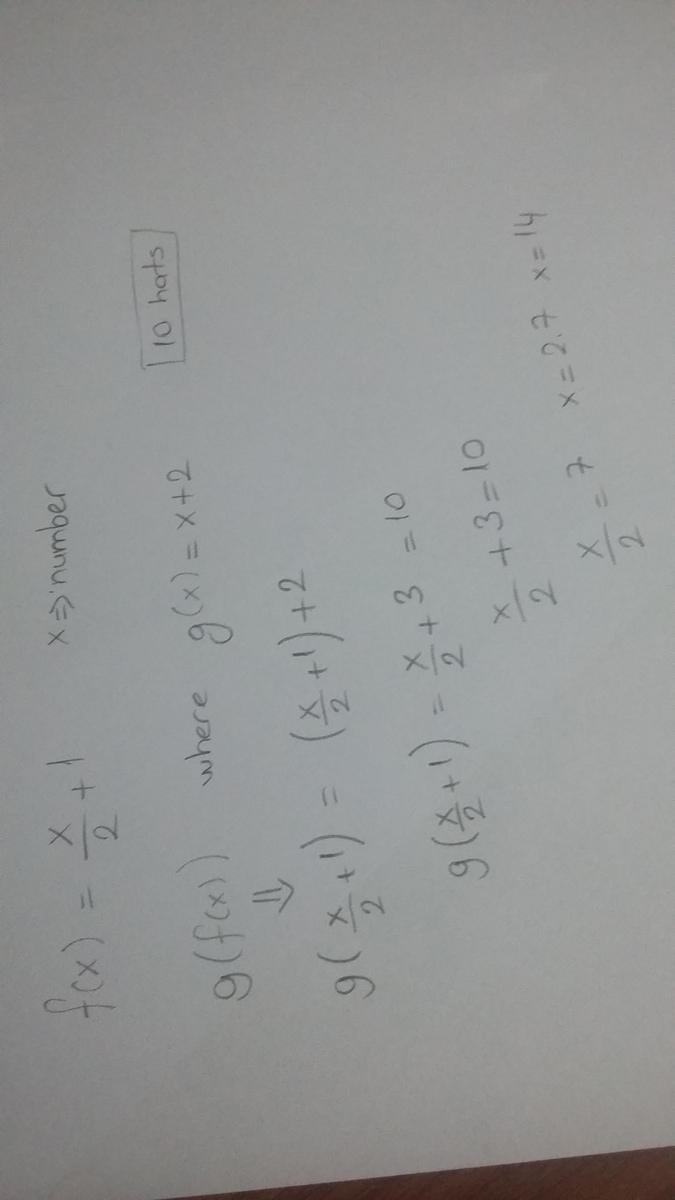 f(x) = x/2 + 1 x ⇒ number
g(f(x)) where g(x) = x + 2
10 hats
⇓
g(x/2 + 1) = (x/2 + 1) + 2
g(x/2 + 1) = x/2 + 3 = 10
x/2 + 3 = 10
x/2 = 7 x = 2.7 x = 14